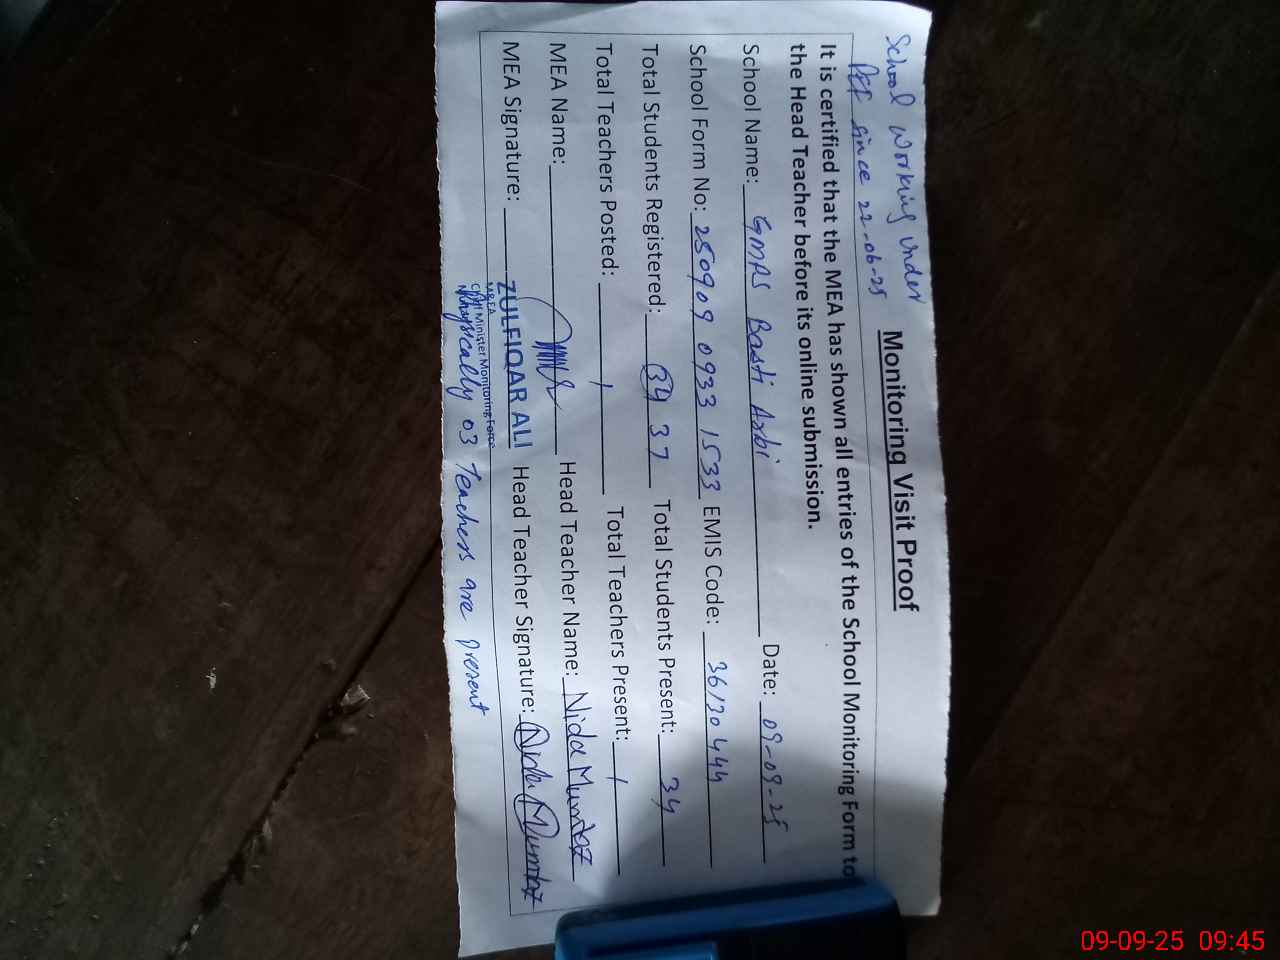 School Working Under
PEF since 22-06-25
Monitoring Visit Proof
It is certified that the MEA has shown all entries of the School Monitoring Form to
the Head Teacher before its online submission.
School Name: GMPS Basti Arbi Date: 09-09-25
School Form No: 250909 0933 1533 EMIS Code: 36130444
Total Students Registered: 34 37 Total Students Present: 34
Total Teachers Posted: 1 Total Teachers Present: 1
MEA Name: Head Teacher Name: Nida Mumtaz
MEA Signature: ZULFIQAR ALI Head Teacher Signature: Nida Mumtaz
M&EA
Chief Minister Monitoring Force
Physically 03 Teachers are present
09-09-25 09:45